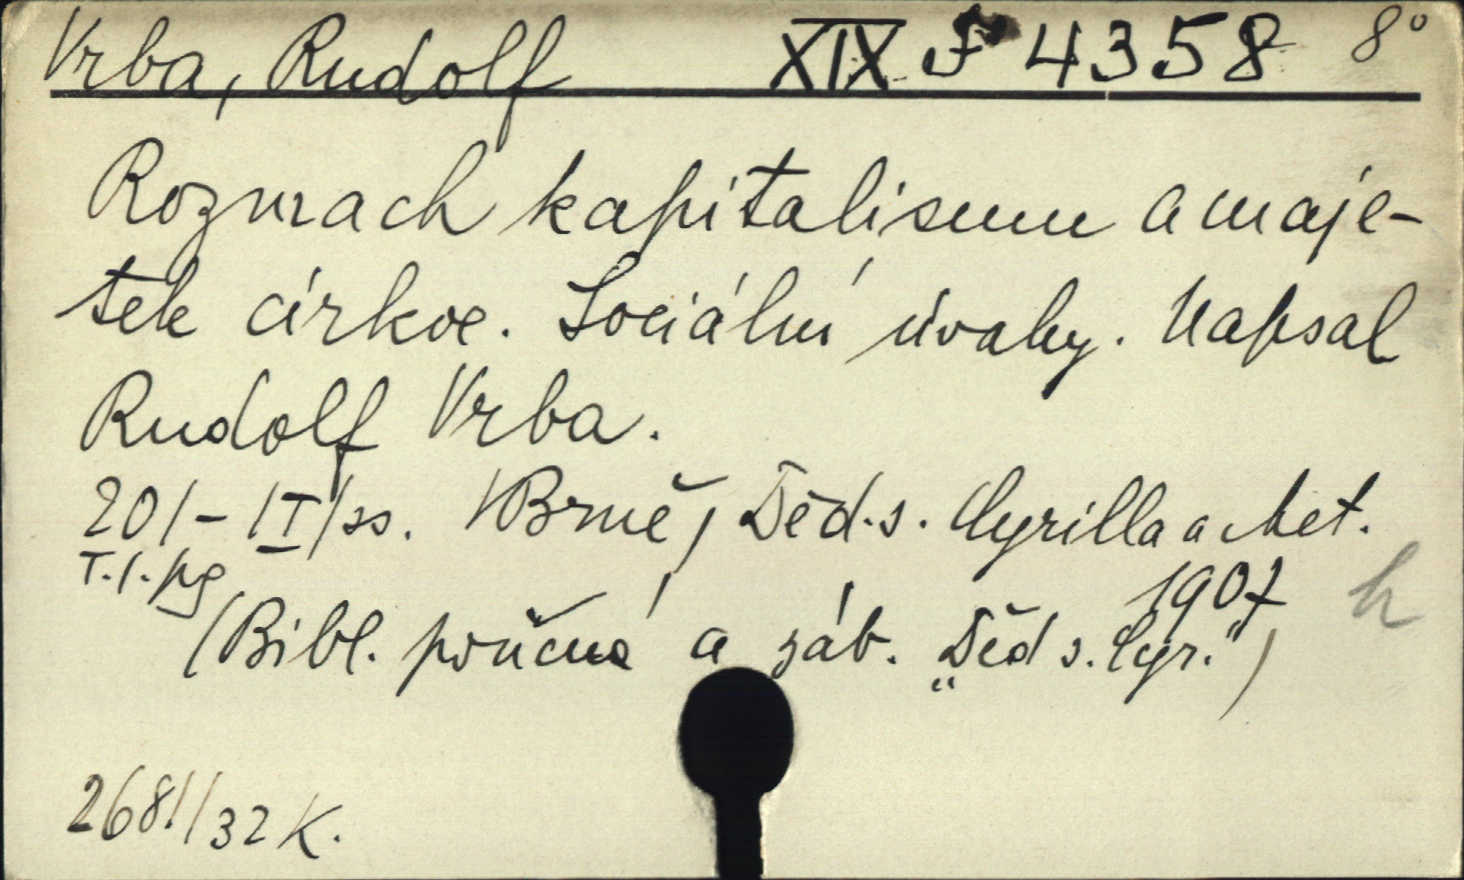 Vrba, Rudolf XIX F 4358 8°
Rozmach kapitalismu a maje-
tek církve. Sociální úvahy. Napsal
Rudolf Vrba.
201-II/ss. V Brně, Děd. s. Cyrilla a Met.
T.l.pg 1907 h
(Bibl. poučná a záb. „Děd s. Cyr.")
2681/32 K.